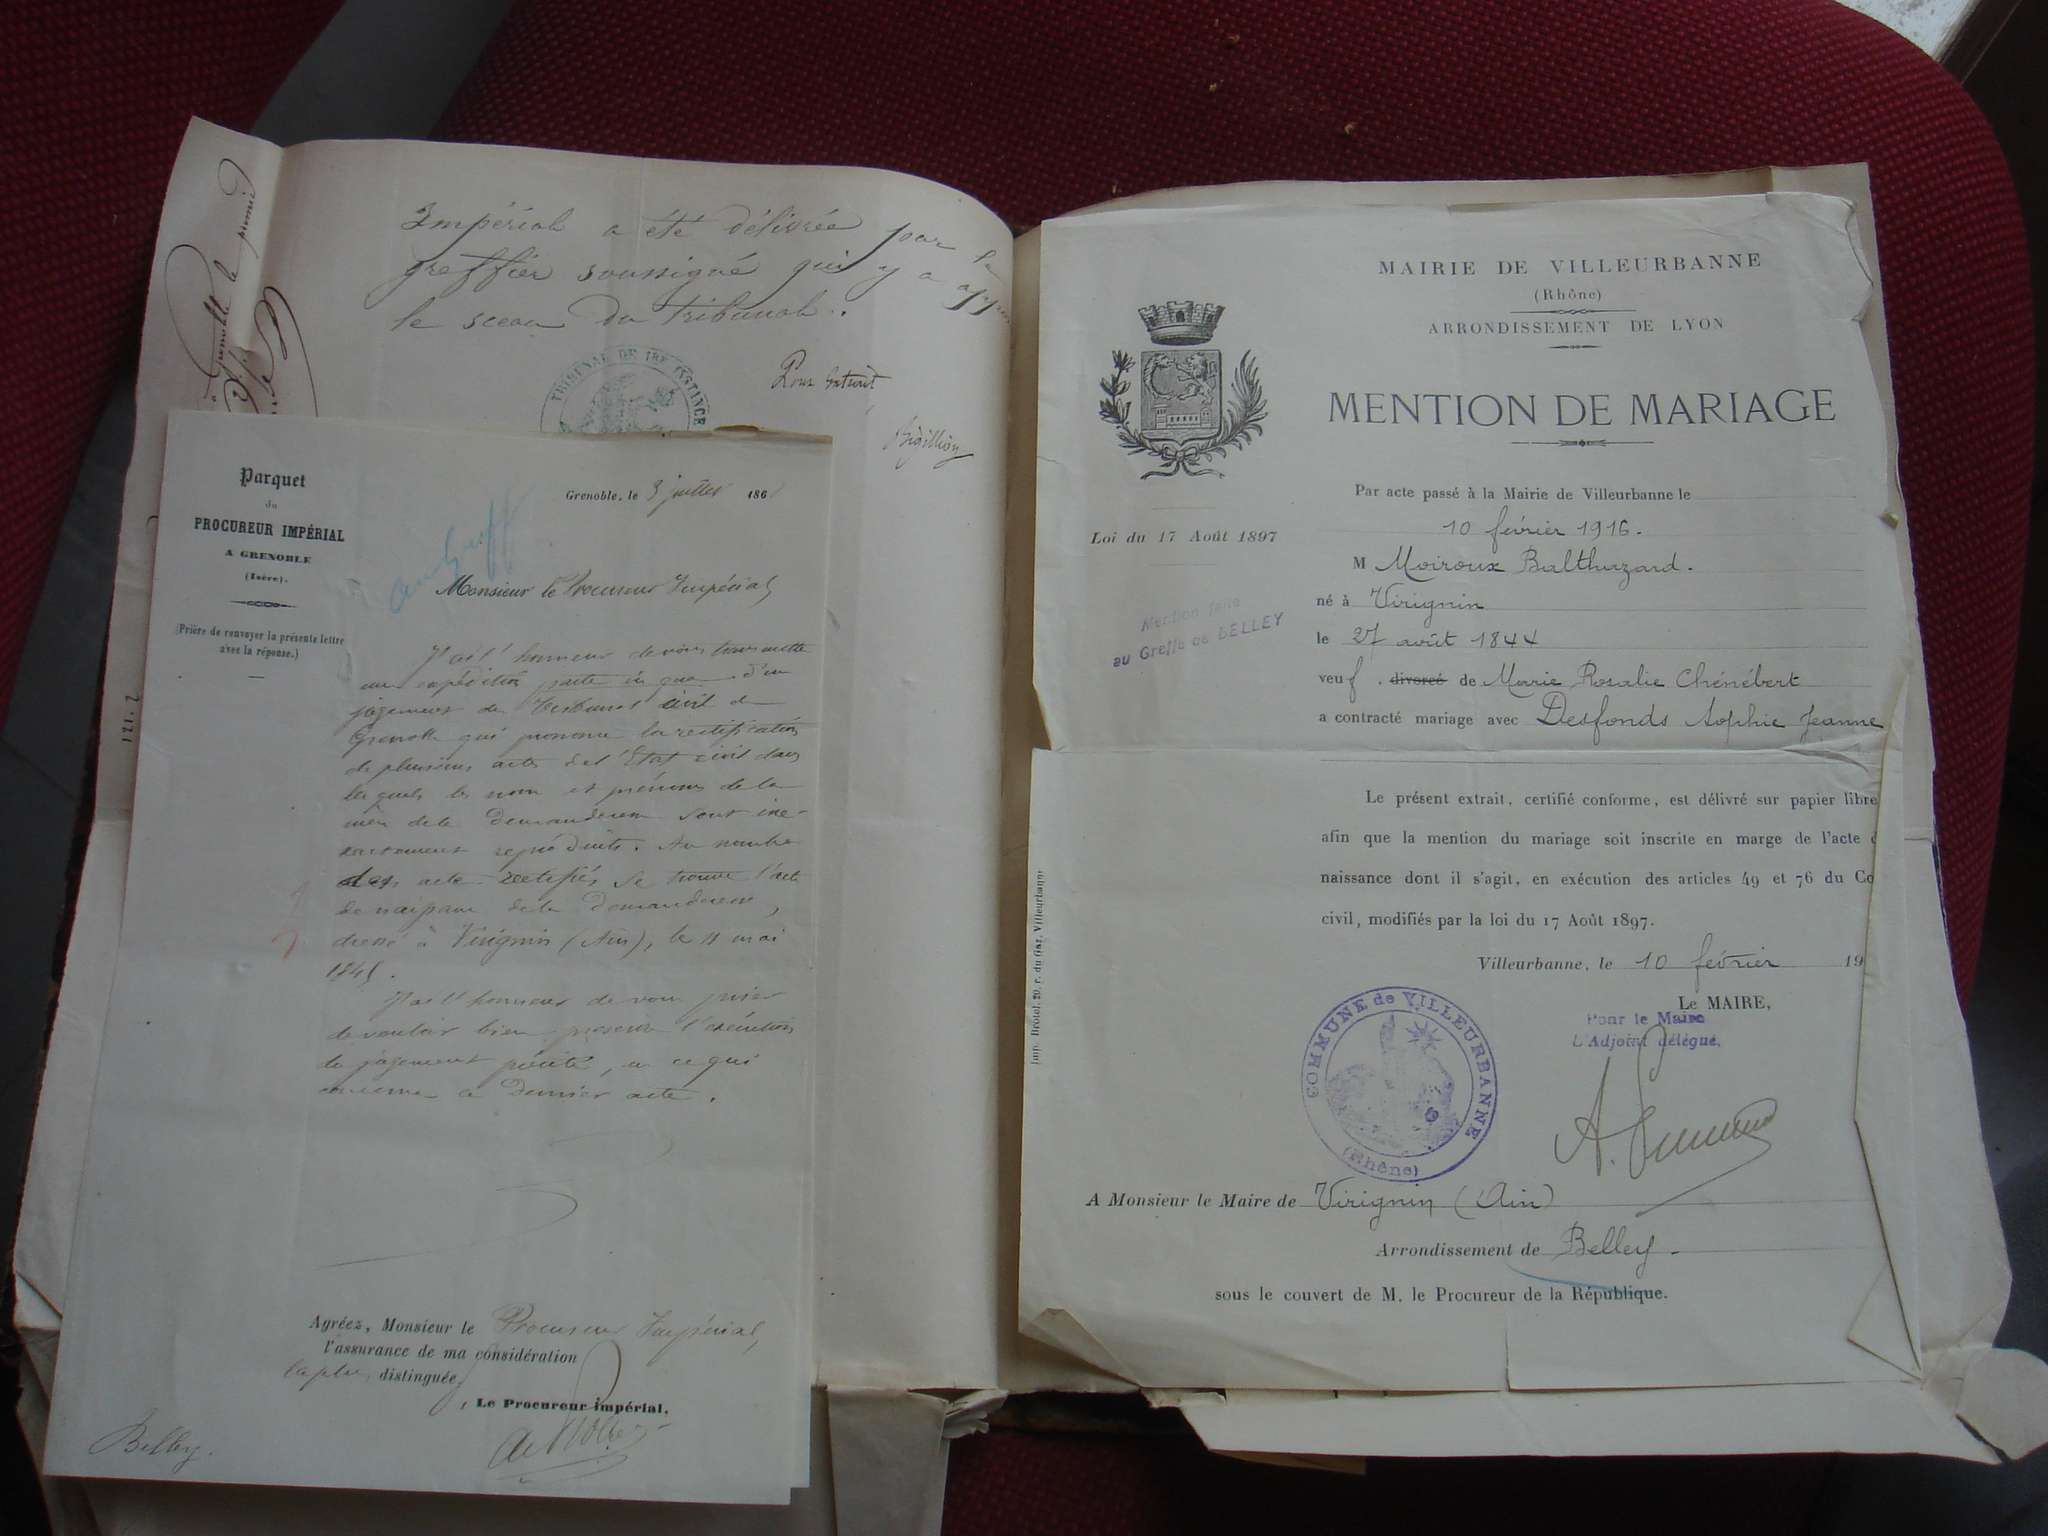 Impérial a été délivrée par le
greffier soussigné qui y a
le sceau du tribunal.
TRIBUNAL DE 1RE INSTANCE
Pour Extrait
à Grenoble le
Parquet
du
PROCUREUR IMPÉRIAL
A GRENOBLE
(Isère).
(Prière de renvoyer la présente lettre
avec la réponse.)
Grenoble, le 3 juillet 186
Monsieur le Procureur Impérial,
J'ai l'honneur de vous transmettre
une expédition parte in qua d'un
jugement du Tribunal civil de
Grenoble qui prononce la rectification
de plusieurs actes de l'Etat civil dans
lesquels les nom et prénoms de la
mère de la Demanderesse sont ine-
xactement reproduits. Au nombre
des actes rectifiés se trouve l'acte
de naissance de la Demanderesse,
dressé à Virignin (Ain), le 11 mai
184
J'ai l'honneur de vous prier
de vouloir bien prescrire l'exécution
du jugement précité, en ce qui
concerne ce dernier acte.
Agréez, Monsieur le Procureur Impérial,
l'assurance de ma considération
la plus distinguée,
Le Procureur impérial,
Belley.
MAIRIE DE VILLEURBANNE
(Rhône)
ARRONDISSEMENT DE LYON
MENTION DE MARIAGE
Loi du 17 Août 1897
Mention faite
au Greffe de BELLEY
Par acte passé à la Mairie de Villeurbanne le
10 février 1916.
M Moiroux Balthazard.
né à Virignin
le 27 août 1844
veuf . divorcé de Marie Rosalie Chénébert
a contracté mariage avec Desfonds Sophie Jeanne
Le présent extrait, certifié conforme, est délivré sur papier libre
afin que la mention du mariage soit inscrite en marge de l'acte d
naissance dont il s'agit, en exécution des articles 49 et 76 du Co
civil, modifiés par la loi du 17 Août 1897.
Villeurbanne, le 10 février 19
Le MAIRE,
Pour le Maire
L'Adjoint délégué,
COMMUNE de VILLEURBANNE
(Rhône)
A Monsieur le Maire de Virignin (Ain)
Arrondissement de Belley.
sous le couvert de M. le Procureur de la République.
Imp. Brotel, 20, r. du Gaz, Villeurbanne